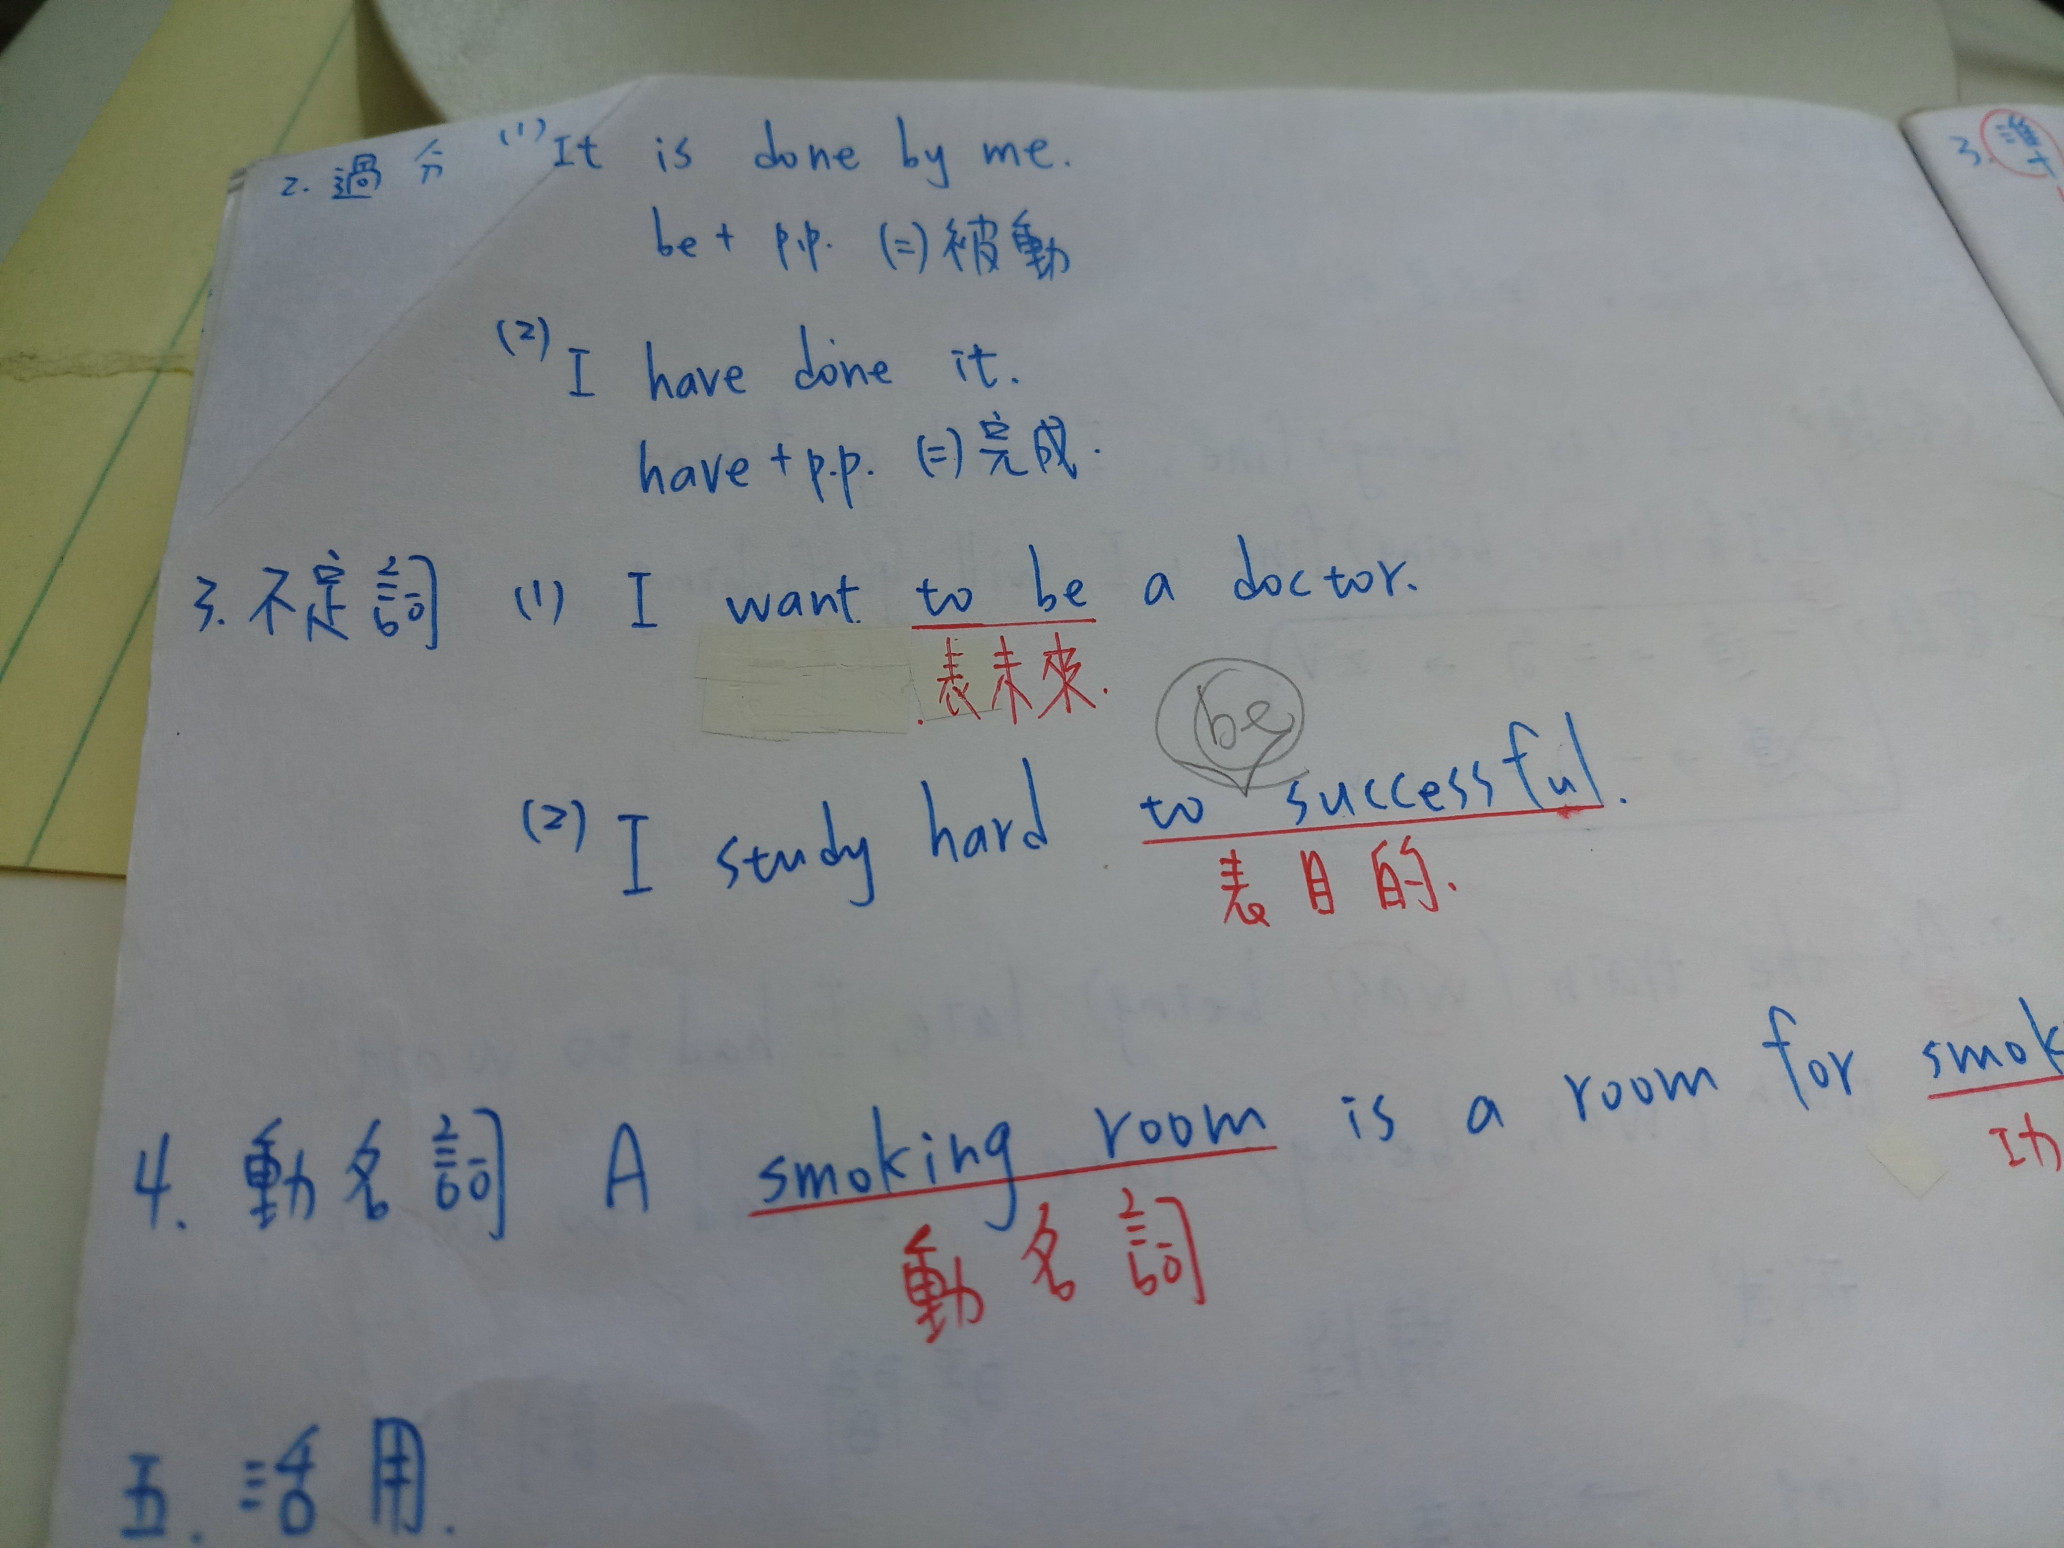 2. 過分 (1) It is done by me.
be + p.p. (=) 被動
(2) I have done it.
have + p.p. (=) 完成.
3. 不定詞 (1) I want to be a doctor.
.表未來.
be
(2) I study hard to successful.
表目的.
4. 動名詞 A smoking room is a room for smok
功
動名詞
五. 活用.
3. 準